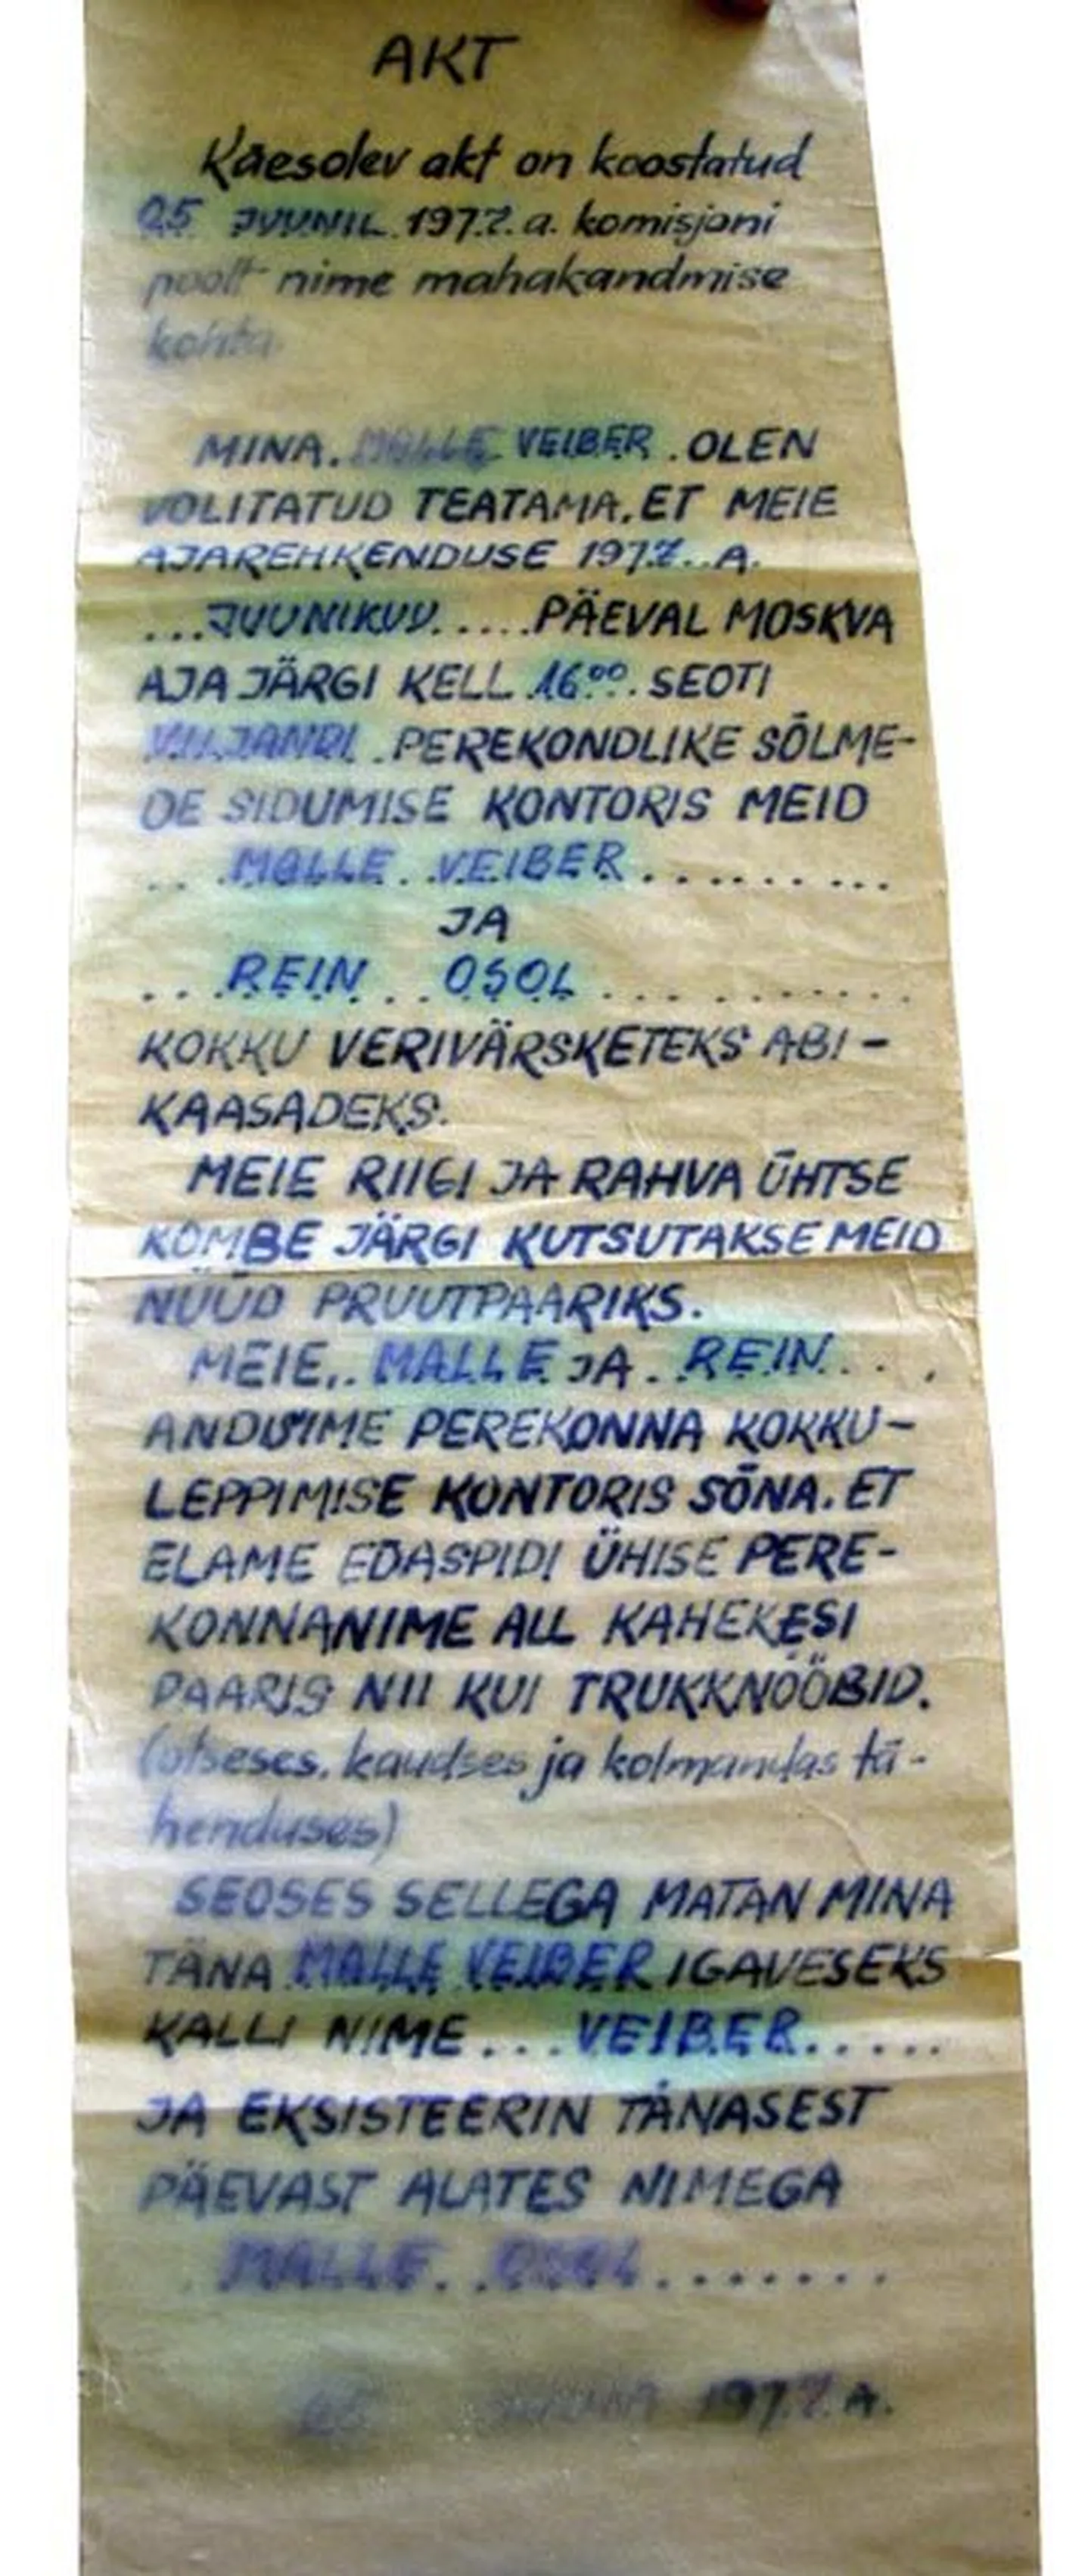 AKT
Käesolev akt on koostatud
25 JUUNIL 1977. a. komisjoni
poolt nime mahakandmise
kohta.
MINA. MALLE VEIBER . OLEN
VOLITATUD TEATAMA, ET MEIE
AJAREHKENDUSE 1977.. A.
...JUUNIKUU.....PÄEVAL MOSKVA
AJA JÄRGI KELL 16⁰⁰. SEOTI
VILJANDI . PEREKONDLIKE SÕLME-
DE SIDUMISE KONTORIS MEID
... MALLE . . VEIBER . . . . . . . . .
JA
. . . REIN . . OSOL . . . . . . . . . . .
KOKKU VERIVÄRSKETEKS ABI-
KAASADEKS.
MEIE RIIGI JA RAHVA ÜHTSE
KOMBE JÄRGI KUTSUTAKSE MEID
NÜÜD PRUUTPAARIKS.
MEIE,. MALLE JA . . REIN . . . .
ANDSIME PEREKONNA KOKKU-
LEPPIMISE KONTORIS SÕNA, ET
ELAME EDASPIDI ÜHISE PERE-
KONNANIME ALL KAHEKESI
PAARIS NII KUI TRUKKNÖÖBID.
(otseses, kaudses ja kolmandas tä-
henduses)
SEOSES SELLEGA MATAN MINA
TÄNA MALLE VEIBER IGAVESEKS
KALLI NIME . . . VEIBER . . . . . .
JA EKSISTEERIN TÄNASEST
PÄEVAST ALATES NIMEGA
. MALLE . . OSOL . . . . . . .
25 1977. A.